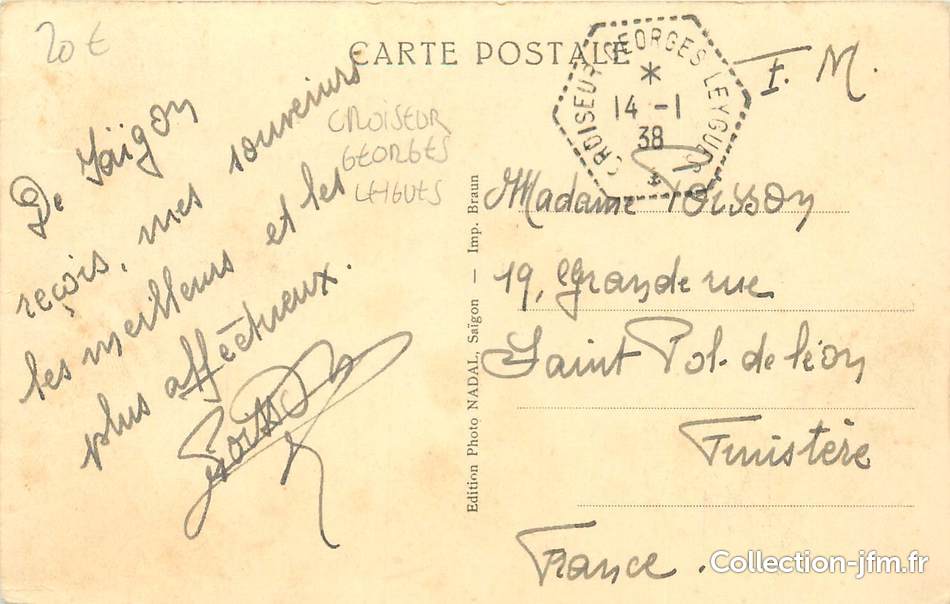 20 €
CARTE POSTALE
CROISEUR GEORGES LEYGUES
*
14 -1
38
*
F. M.
De Saïgon
reçois, mes souvenirs
les meilleurs et les
plus affectueux.
CROISEUR
GEORGES
LEIGUES
Edition Photo NADAL, Saïgon — Imp. Braun
Madame
19, Grande rue
Saint Pol. de léon
Finistère
France.
Collection-jfm.fr